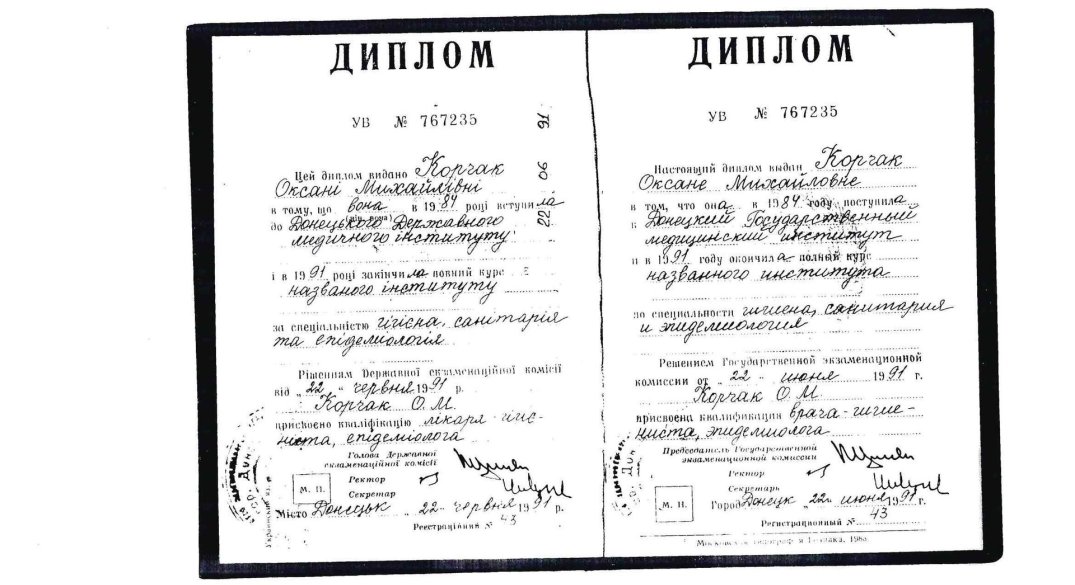 ДИПЛОМ
УВ № 767235
22 06 91
Цей диплом видано Корчак
Оксані Михайлівні
в тому, що вона в 1984 році вступила
до Донецького Державного
медичного інституту
і в 1991 році закінчила повний курс
названого інституту
за спеціальністю гігієна, санітарія
та епідеміологія
Рішенням Державної екзаменаційної комісії
від „22" червня 1991 р.
Корчак О. М.
присвоєно кваліфікацію лікаря-гігіє-
ніста, епідеміолога
Голова Державної
екзаменаційної комісії
Ректор
Секретар
М. П.
Місто Донецьк „22" червня 1991 р.
Реєстраційний № 43
ДИПЛОМ
УВ № 767235
Настоящий диплом выдан Корчак
Оксане Михайловне
в том, что она в 1984 году поступила
в Донецкий Государственный
медицинский институт
и в 1991 году окончила полный курс
названного института
по специальности гигиена, санитария
и эпидемиология
Решением Государственной экзаменационной
комиссии от „22" июня 1991 г.
Корчак О. М
присвоена квалификация врача-гигие-
ниста, эпидемиолога
Председатель Государственной
экзаменационной комиссии
Ректор
Секретарь
М. П.
Город Донецк „22" июня 1991 г.
Регистрационный № 43